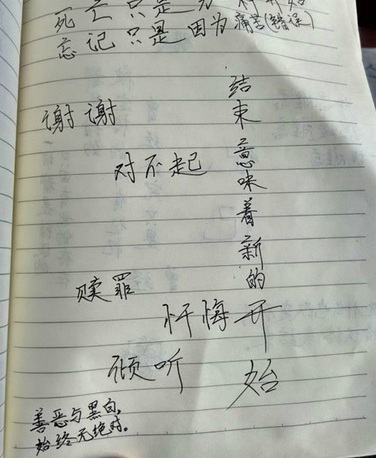 死亡只是为
忘记只是因为痛苦(错误)
谢谢
对不起
结束意味着新的开始
赎罪
忏悔
倾听
善恶与黑白,
始终无绝对。